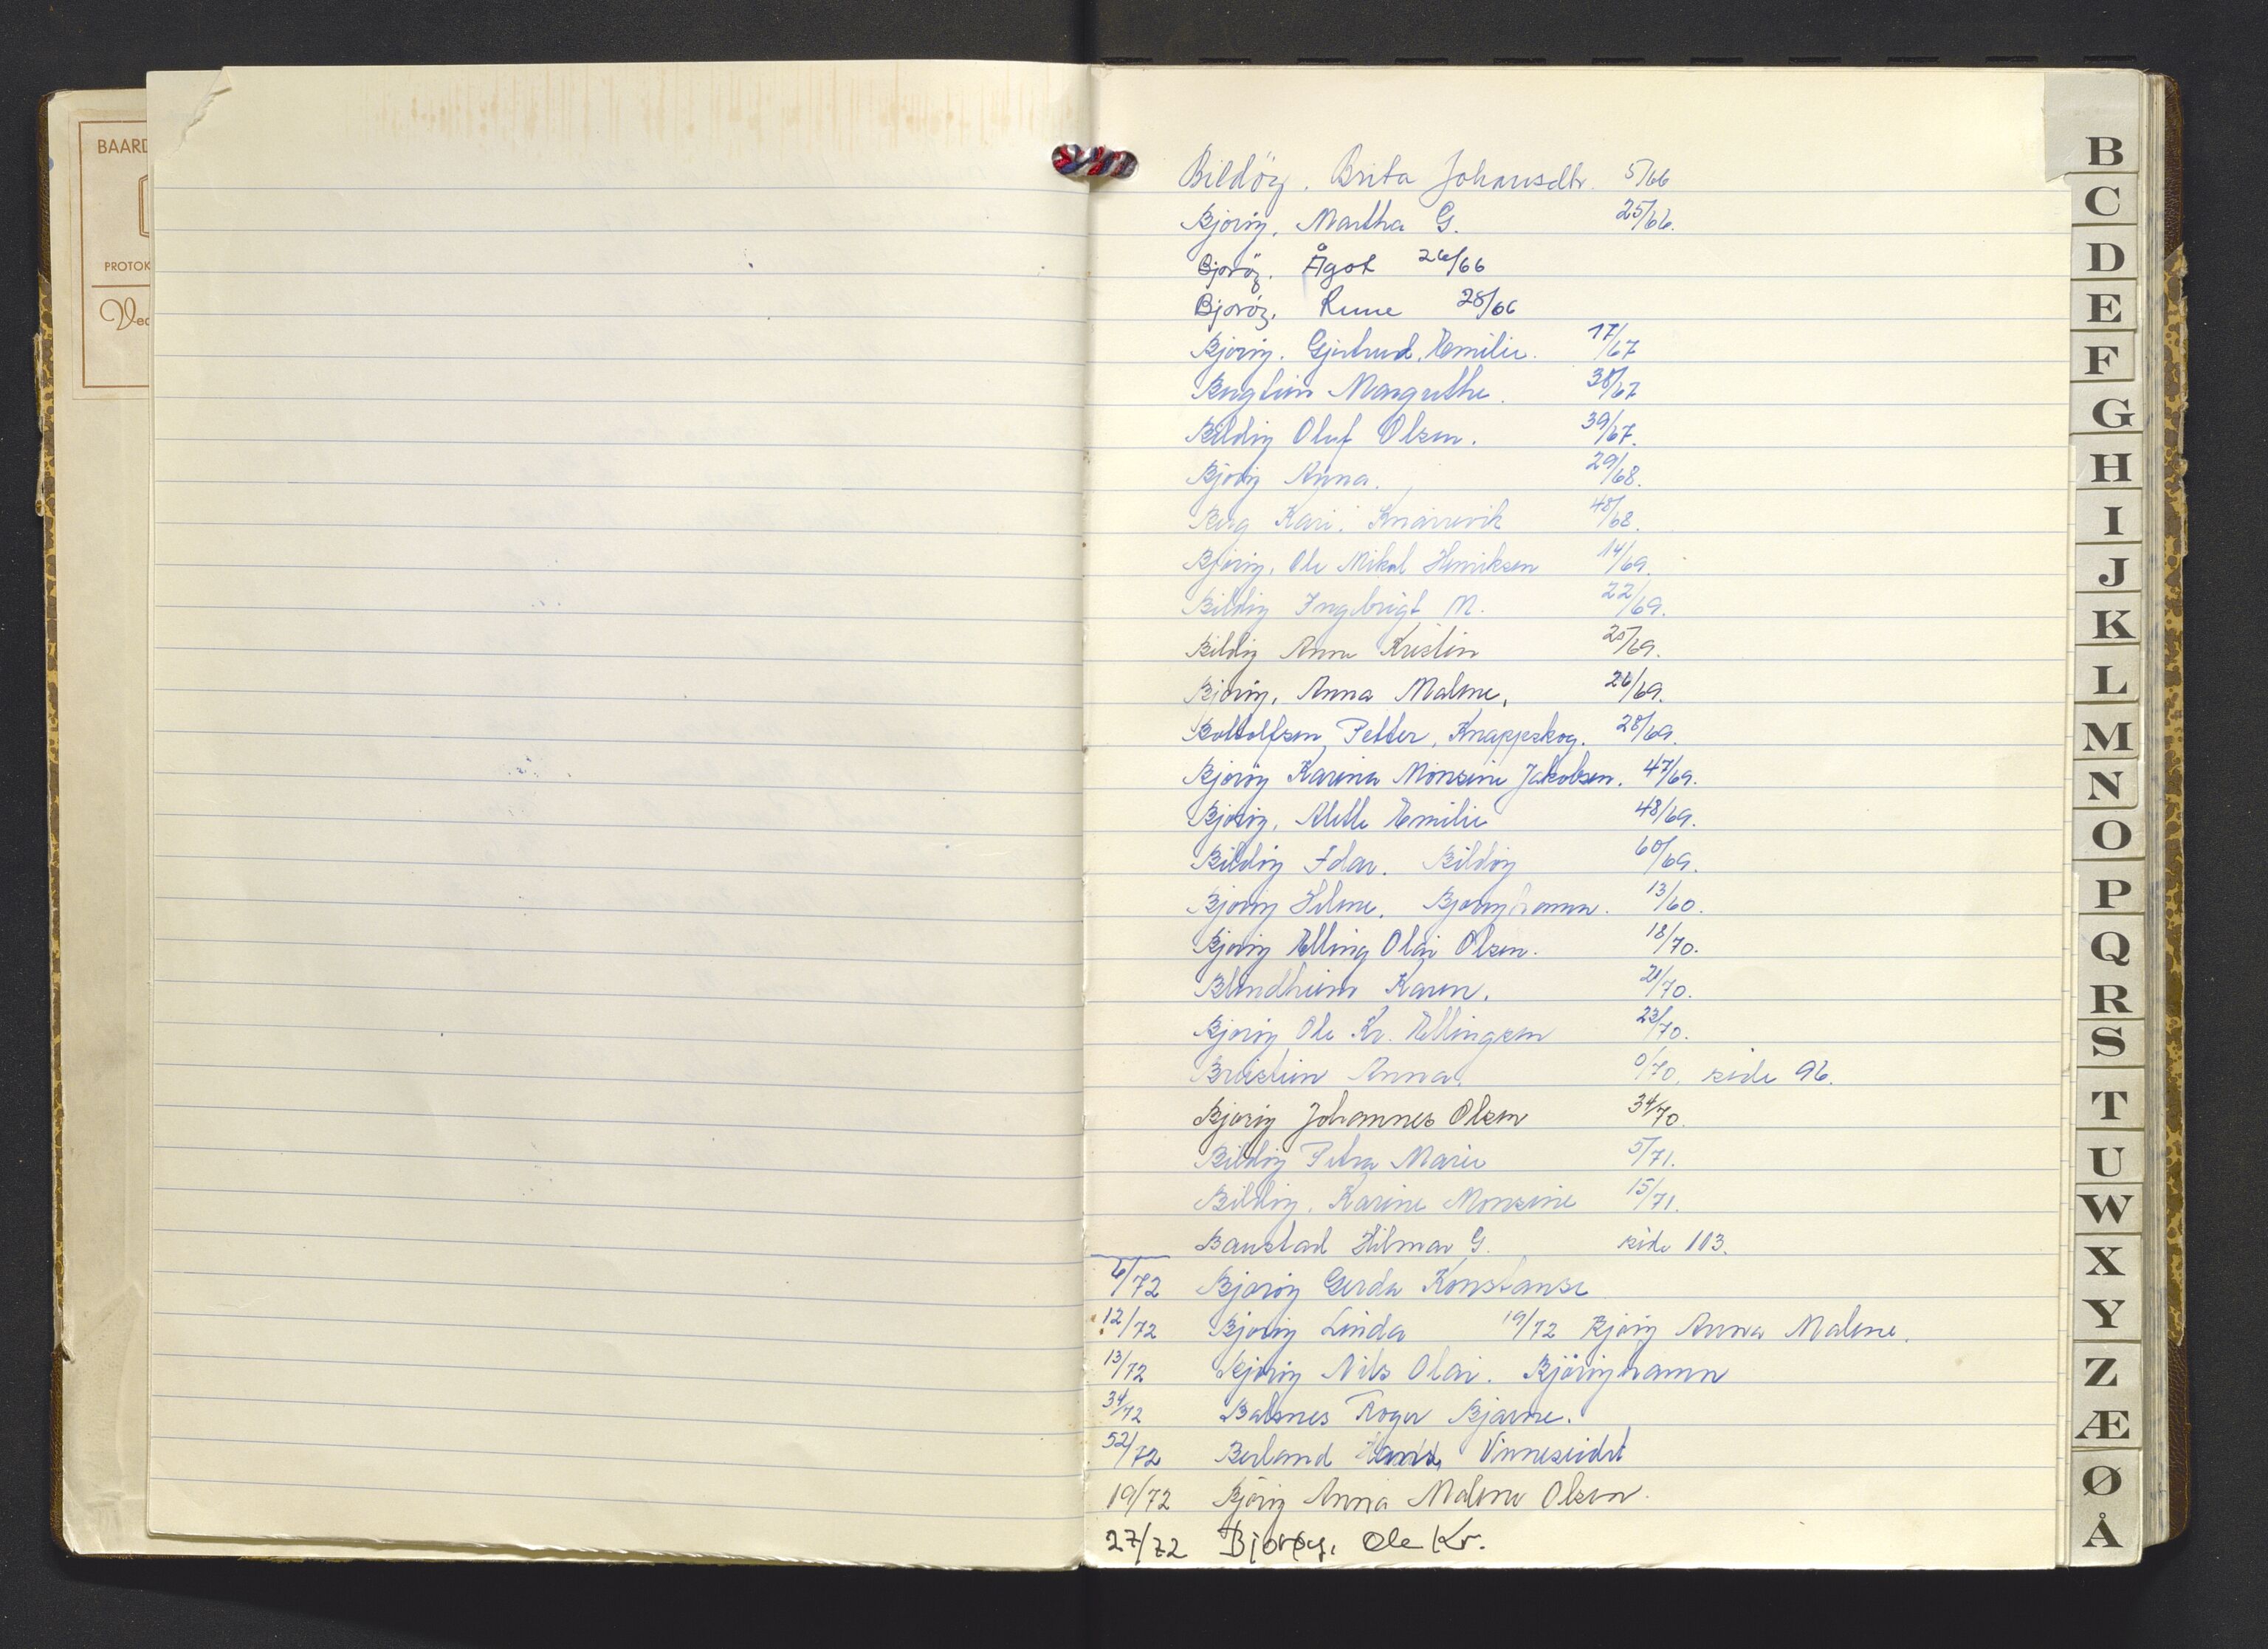 BAARD
PROTOK
Ved
Bildöy. Brita Johansdtr. 5/66
Bjorøy, Martha G. 25/66.
Bjoröy. Ågot 26/66
Bjoröy. Rune 28/66
Bjorøy. Gjertrud. Emilie. 17/67
Margrethe. 38/67
Bildøy Oluf Olsen. 39/67.
Bjorøy Anna. 29/68.
Berg Kari. Knarrevik 48/68.
Bjorøy, Ole Mikal Henriksen 14/69.
Bildøy Ingebrigt M. 22/69.
Bildøy Anne Kristin 25/69.
Bjorøy, Anna Malene, 26/69.
Bottolfsen, Petter, Knappskog. 28/69.
Bjorøy Karina Monsine Jakobsen. 47/69.
Bjorøy, Alette Emilie 48/69.
Bildøy Idar. Bildøy 60/69.
Bjorøy Hilma. Bjorøyhamn. 13/60.
Bjorøy Elling Olai Olsen. 18/70.
Blindheim Karen. 21/70.
Bjorøy Ole Kr. Ellingsen 23/70.
Breistein Anna. 0/70. side 96.
Bjorøy Johannes Olsen 34/70.
Bildøy Petra Marie 5/71.
Bildøy, Karine Monsine 15/71.
Baustad Hilmar G. side 103.
6/72 Bjorøy Gerda Konstanse
12/72 Bjorøy Linda 19/72 Bjorøy Anna Malene.
13/72 Bjorøy Nils Olai. Björöyhamn
34/72 Balsnes Roger Bjarne.
52/72 Berland Vinneseidet
19/72 Bjorøy Anna Malene Olsen.
27/72 Bjorøy, Ole Kr.
B
C
D
E
F
G
H
I
J
K
L
M
N
O
P
Q
R
S
T
U
W
X
Y
Z
Æ
Ø
Å